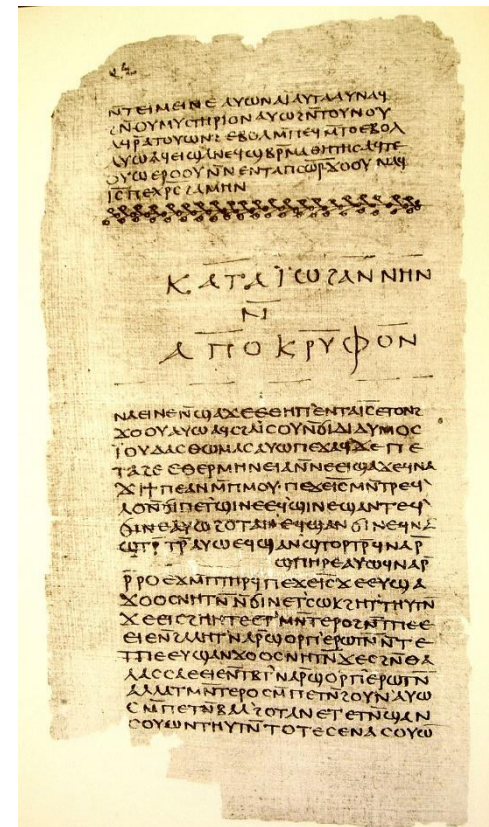 ⲛ̄ⲧⲉⲓⲙⲉⲓⲛⲉ ⲁⲩⲱ ⲛⲁⲓ ⲁⲩⲧⲁⲁⲩ ⲛⲁϥ
ϩⲛ̄ⲟⲩⲙⲩⲥⲧⲏⲣⲓⲟⲛ ⲁⲩⲱ ϩⲛ̄ⲧⲟⲩⲛⲟⲩ
ⲁϥⲣⲁⲧⲟⲩⲱⲛϩ ⲉⲃⲟⲗ ⲙ̄ⲡⲉϥⲙ̄ⲧⲟ ⲉⲃⲟⲗ
ⲁⲩⲱ ⲁϥⲉⲓ ϣⲁⲛⲉϥϣⲃⲣⲙⲁⲑⲏⲧⲏⲥ ⲁϥϯⲉ
ⲟⲩⲱ ⲉⲣⲟⲟⲩ ⲛ̄ⲛⲉⲛⲧⲁⲡⲥⲱ̅ⲣ̅ ϫⲟⲟⲩ ⲛⲁϥ
ⲓ̅ⲥ̅ ⲡⲉⲭⲣ̅ⲥ̅ ϩⲁⲙⲏⲛ
ⲕⲁⲧⲁ ⲓ̈ⲱϩⲁⲛⲛⲏⲛ
ⲛ̄
ⲁⲡⲟⲕⲣⲩⲫⲟⲛ
ⲛⲁⲉⲓⲛⲉ ⲛ̄ϣⲁϫⲉ ⲉⲑⲏⲡ ⲉⲛⲧⲁⲓ̅ⲥ̅ ⲉⲧⲟⲛϩ
ϫⲟⲟⲩ ⲁⲩⲱ ⲁϥⲥϩⲁⲓⲥⲟⲩ ⲛ̄ϭⲓⲇⲓⲇⲩⲙⲟⲥ
ⲓ̈ⲟⲩⲇⲁⲥ ⲑⲱⲙⲁⲥ ⲁⲩⲱ ⲡⲉϫⲁϥ ϫⲉ ⲡⲉ
ⲧⲁϩⲉ ⲉⲑⲉⲣⲙⲏⲛⲉⲓⲁ ⲛ̄ⲛⲉⲉⲓϣⲁϫⲉ ϥⲛⲁ
ϫⲓϯⲡⲉ ⲁⲛ ⲙ̄ⲡⲙⲟⲩ ⲡⲉϫⲉⲓ̅ⲥ̅ ⲙⲛ̄ⲧⲣⲉϥ
ⲗⲟ ⲛ̄ϭⲓⲡⲉⲧϣⲓⲛⲉ ⲉϥϣⲓⲛⲉ ϣⲁⲛⲧⲉϥ
ϭⲓⲛⲉ ⲁⲩⲱ ϩⲟⲧⲁⲛ ⲉϥϣⲁⲛϭⲓⲛⲉ ϥⲛⲁ
ϣⲧⲣ̄ⲧⲣ̄ ⲁⲩⲱ ⲉϥϣⲁⲛϣⲧⲟⲣⲧⲣ̄ ϥⲛⲁⲣ̄
ϣⲡⲏⲣⲉ ⲁⲩⲱ ϥⲛⲁⲣ̄
ⲣ̄ⲣⲟ ⲉϫⲙ̄ⲡⲧⲏⲣϥ ⲡⲉϫⲉⲓ̅ⲥ̅ ϫⲉ ⲉⲩϣⲁ
ϫⲟⲟⲥ ⲛⲏⲧⲛ̄ ⲛ̄ϭⲓⲛⲉⲧⲥⲱⲕ ϩⲏⲧⲧⲏⲩⲧⲛ̄
ϫⲉ ⲉⲓⲥϩⲏⲏⲧⲉ ⲉⲧⲙⲛ̄ⲧⲉⲣⲟ ϩⲛ̄ⲧⲡⲉ ⲉ
ⲉⲓⲉ ⲛ̄ϩⲁⲗⲏⲧ ⲛⲁⲣ̄ϣⲟⲣⲡ ⲉⲣⲱⲧⲛ̄ ⲛ̄ⲧⲉ
ⲧⲡⲉ ⲉⲩϣⲁⲛϫⲟⲟⲥ ⲛⲏⲧⲛ̄ ϫⲉ ⲥϩⲛ̄ⲑⲁ
ⲗⲁⲥⲥⲁ ⲉⲉⲓⲉ ⲛ̄ⲧⲃ̄ⲧ ⲛⲁⲣ̄ϣⲟⲣⲡ ⲉⲣⲱⲧⲛ̄
ⲁⲗⲗⲁ ⲧⲙⲛ̄ⲧⲉⲣⲟ ⲥⲙ̄ⲡⲉⲧⲛ̄ϩⲟⲩⲛ ⲁⲩⲱ
ⲥⲙ̄ⲡⲉⲧⲛ̄ⲃⲁⲗ ϩⲟⲧⲁⲛ ⲉⲧⲉⲧⲛ̄ϣⲁⲛ
ⲥⲟⲩⲱⲛ ⲧⲏⲩⲧⲛ̄ ⲧⲟⲧⲉ ⲥⲉⲛⲁⲥⲟⲩⲱ